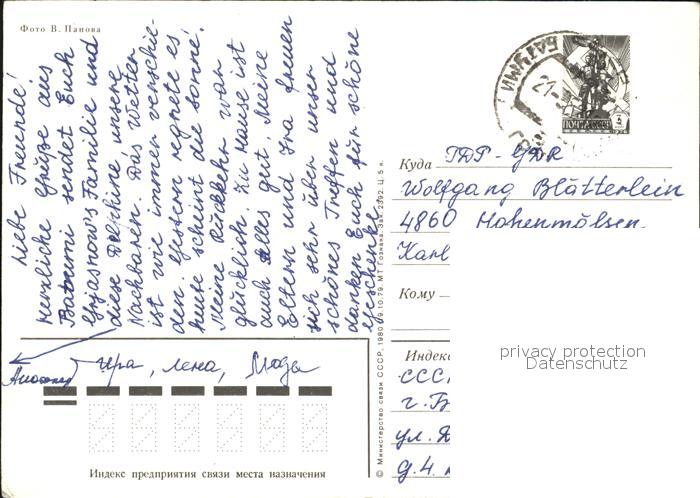 Фото В. Панова
Liebe Freunde!
Herzliche Grüße aus
Batumi sendet Euch
Grjasnow's Familie und
diese Delphine, unsere
Nachbaren. Das Wetter
ist wie immer verschie-
den. Gestern regnete es
heute scheint die Sonne!
Meine Rückkehr war
glücklich. Zu Hause ist
auch alles gut. Meine
Eltern und Ira freuen
sich sehr über unser
schönes Treffen und
danken Euch für schöne
Geschenke.
Ира, Лена,
Индекс предприятия связи места назначения
© Министерство связи СССР, 1980 г. 19.10.79. МТ Гознака. Зак. 2392. Ц. 5 к.
БАТУМИ
ПОЧТА СССР
3
Куда ГДР - GDR
Wolfgang Blätterlein
4860 Hohenmölsen
Karl
Кому
Индекс
СССР
г. Б
ул.
д. 4
privacy protection
Datenschutz